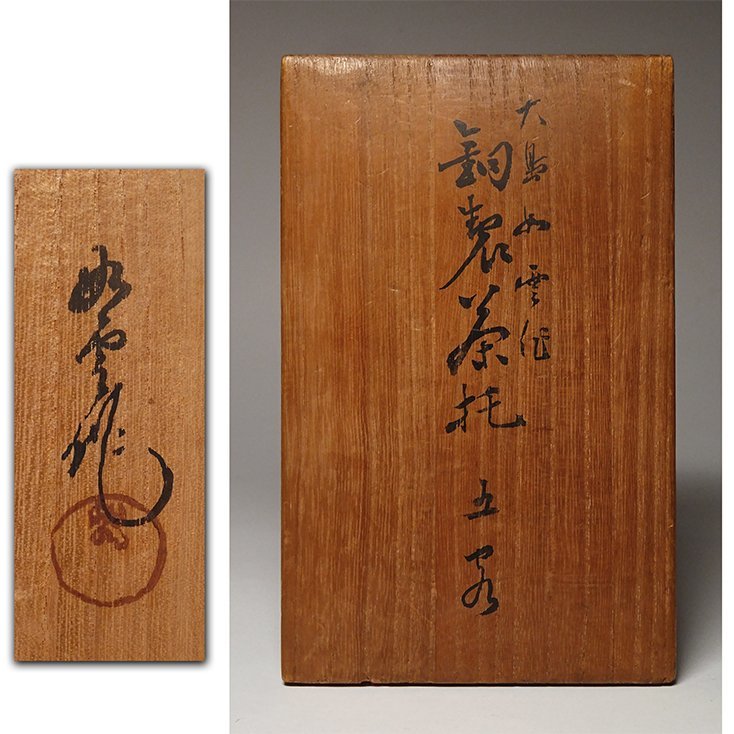 大島如雲作
銅製茶托 五客
如雲作